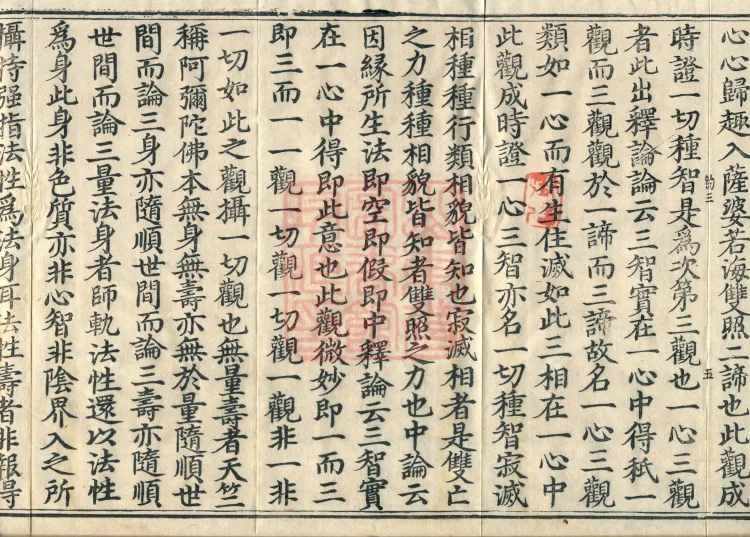 心心歸趣入薩婆若海雙照二諦也此觀成
時證一切種智是為次第三觀也一心三觀
者此出釋論論云三智實在一心中得秖一
觀而三觀觀於一諦而三諦故名一心三觀
類如一心而有生住滅如此三相在一心中
此觀成時證一心三智亦名一切種智寂滅
相種種行類相貌皆知也寂滅相者是雙亡
之力種種相貌皆知者雙照之力也中論云
因緣所生法即空即假即中釋論云三智實
在一心中得即此意也此觀微妙即一而三
即三而一一觀一切觀一切觀一觀非一非
一切如此之觀攝一切觀也無量壽者天竺
稱阿彌陀佛本無身無壽亦無於量隨順世
間而論三身亦隨順世間而論三壽亦隨順
世間而論三量法身者師軌法性還以法性
為身此身非色質亦非心智非陰界入之所
攝持强指法性為法身耳法性壽者非報得